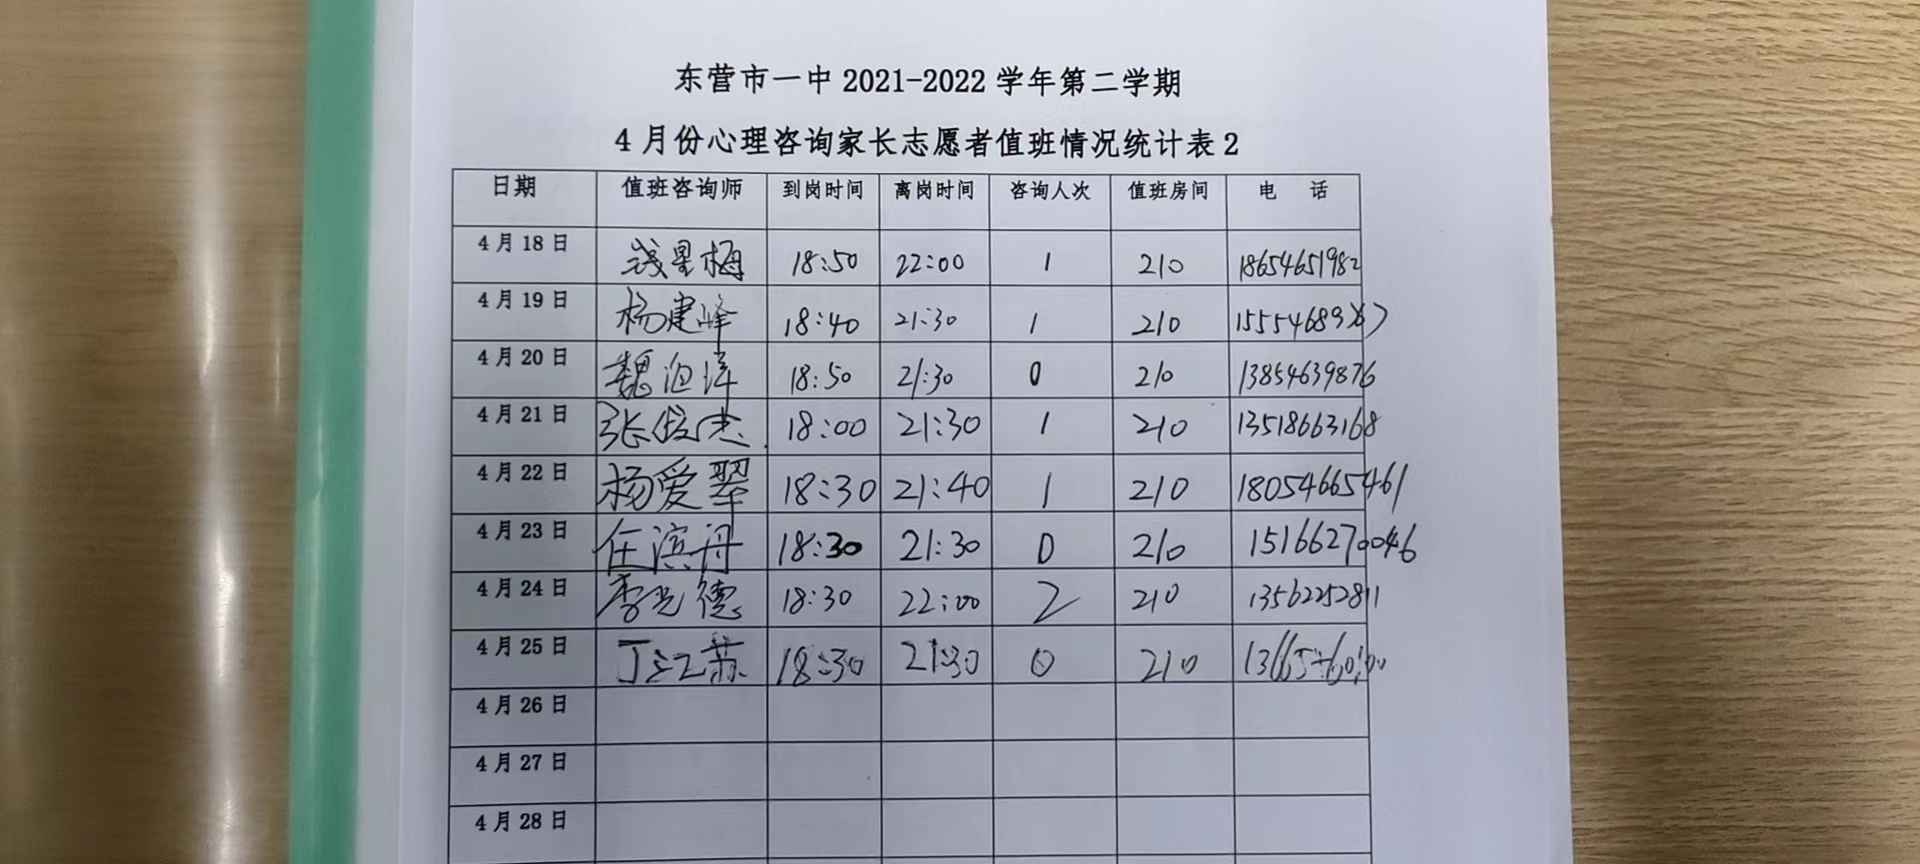 东营市一中 2021-2022 学年第二学期
4 月份心理咨询家长志愿者值班情况统计表 2
日期 值班咨询师 到岗时间 离岗时间 咨询人次 值班房间 电 话
4 月 18 日 钱星梅 18:50 22:00 1 210 18654651982
4 月 19 日 杨建峰 18:40 21:30 1 210
4 月 20 日 魏洹洋 18:50 21:30 0 210 13854639876
4 月 21 日 张俊杰 18:00 21:30 1 210 13518663168
4 月 22 日 杨爱翠 18:30 21:40 1 210 18054665461
4 月 23 日 任滨丹 18:30 21:30 0 210 15166270046
4 月 24 日 李光德 18:30 22:00 2 210 13562252811
4 月 25 日 丁江苏 18:30 21:30 0 210
4 月 26 日
4 月 27 日
4 月 28 日